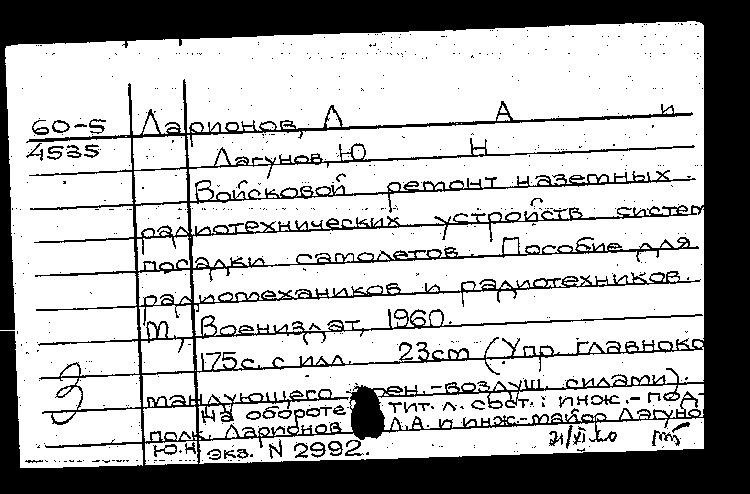 60-5 Ларионов, Л А и
4535 Лагунов, Ю Н
Войсковой ремонт наземных
радиотехнических устройств систем
посадки самолетов. Пособие для
радиомехаников и радиотехников.
М, Воениздат, 1960.
175с. с илл. 23см (Упр. главноко
мандующего воен.-воздуш. силами).
3
На обороте тит. л. сост.: инж.-под
полк. Ларионов Л.А. и инж-майор Лагунов
Ю.Н экз. N 2992. 21/XI 60